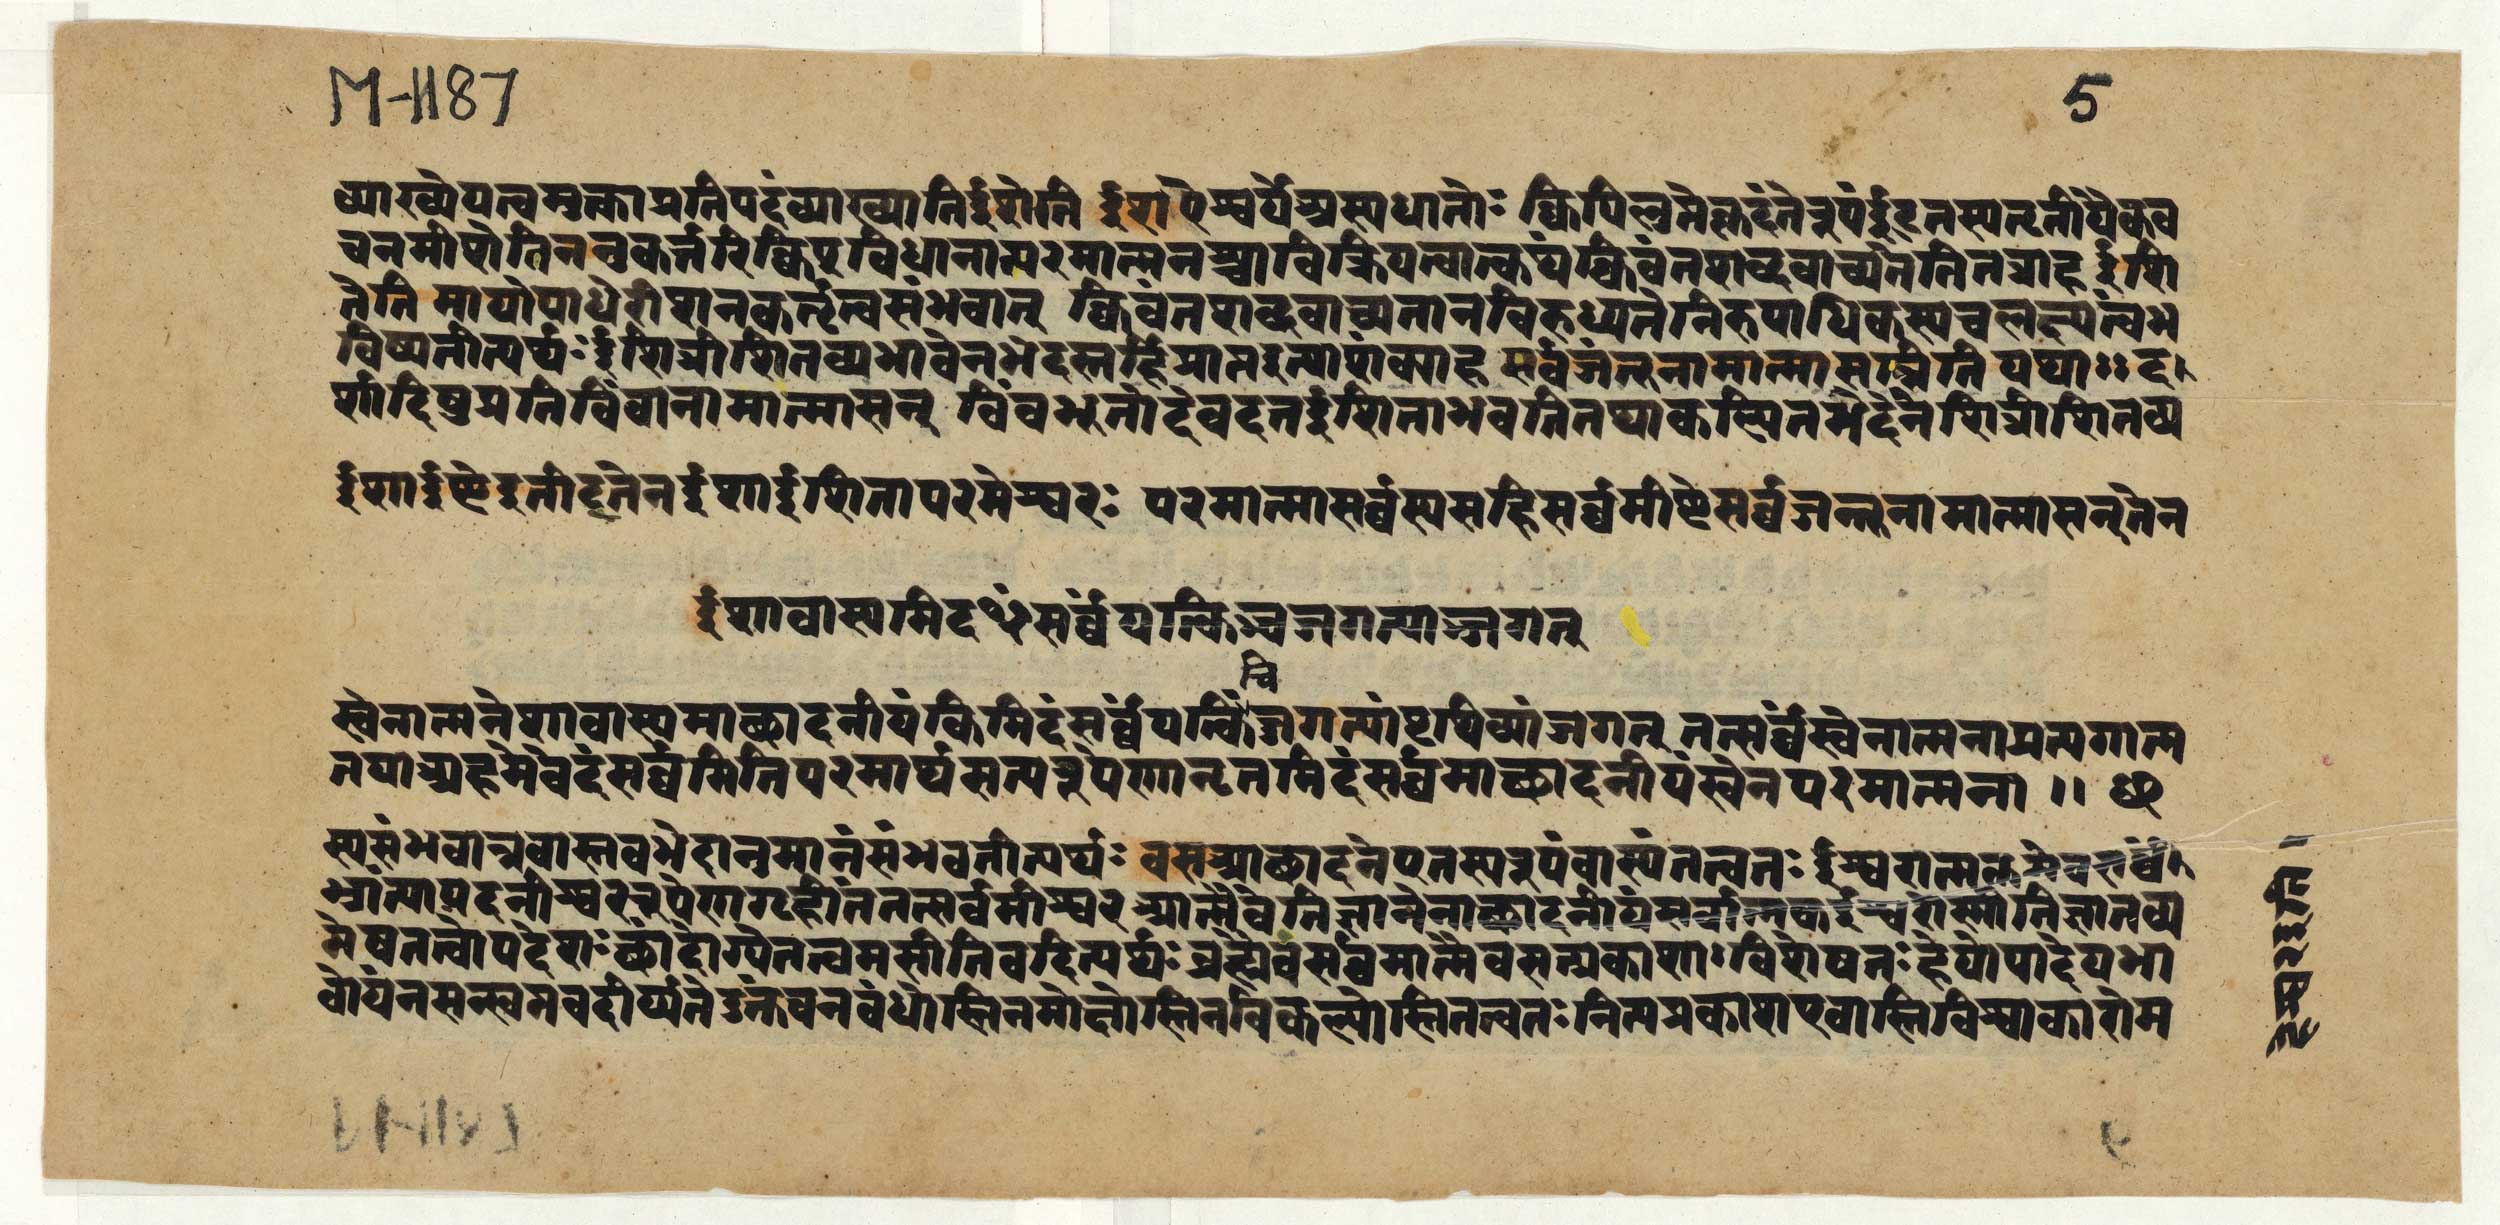 M-1187
5
व्याख्येयत्वमुक्ताप्रतिपदंव्याख्यातिईशेति ईशऐश्वर्येअस्यधातोः क्विपिलुप्तेक्तदंतेरूपंईट्तस्यतृतीयैकव
चनमीषेतिननुकर्तरिक्विप्विधानात्परमात्मनश्चाविक्रियत्वात्कथंक्विबंतशब्दवाच्यतेतितत्राहईशि
तेति मायोपाधेरीशनकर्तृत्वसंभवात् क्विबंतशब्दवाच्यतानविरुध्यतेनिरुपाधिकस्यच
विष्यतीत्यर्थः ईशित्रीशितव्यभावेनभेदस्तर्हिप्राप्तइत्याशंक्याह सर्वजंतुनामात्मासन्निति यथा ॥ द
र्शादिषुप्रतिविंवानामात्मासन् विंवभुतोदेवदत्तईशिताभवतितथाकल्पितभेदेनेशित्रीशितव्य
ईशाईष्टेइतीट्तेनईशाईशितापरमेश्वरः परमात्मासर्व्वस्यसहिसर्व्वमीष्टेसर्व्वजन्तुनामात्मासन्तेन
ईशावास्यमिदꣳसर्व्वंयत्किञ्चजगत्याञ्जगत्
स्वेनात्मनेशावास्यमाछादनीयंकिमिदंसर्व्वंयत्किंजगत्यांपृथिव्यांजगत् तत्सर्व्वंस्वेनात्मनाप्रत्यगात्म
चि
तयाअहमेवेदंसर्व्वमितिपरमार्थसत्यरूपेणानृतमिदंसर्व्वमाछादनीयंस्वेनपरमात्मना ॥
स्यसंभवान्नवास्तवभेदानुमानंसंभवतीत्यर्थः वसआछादनेएतस्यरुपंवास्यंतत्वतः ईश्वरात्मकमेवसर्वं
भ्रांत्यायदनीश्वररुपेणगृहीतंतत्सर्वमीश्वरआत्मैवेतिज्ञानेनाछादनीयंसर्वात्मकईश्वरोस्मीतिज्ञातव्य
मेषतत्वोपदेशः छांदोग्येतत्वमसीतिवदित्यर्थः व्रह्मैवसर्वमात्मैवसत्प्रकाशाविशेषतः हेयोपादेयभा
वोयंनसत्स्वप्नवदीर्यते वंधोस्तिनमोक्षोस्तिनविकल्पोस्तितत्वतः नित्यप्रकाशएवास्तिविश्वाकारोम